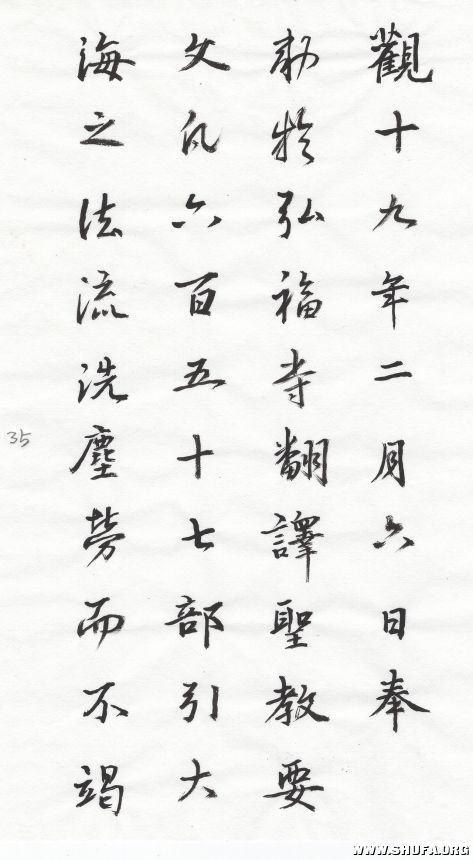 觀十九年二月六日奉
勅於弘福寺翻譯聖教要
文凡六百五十七部引大
海之法流洗塵勞而不竭
35
WWW.SHUFA.ORG